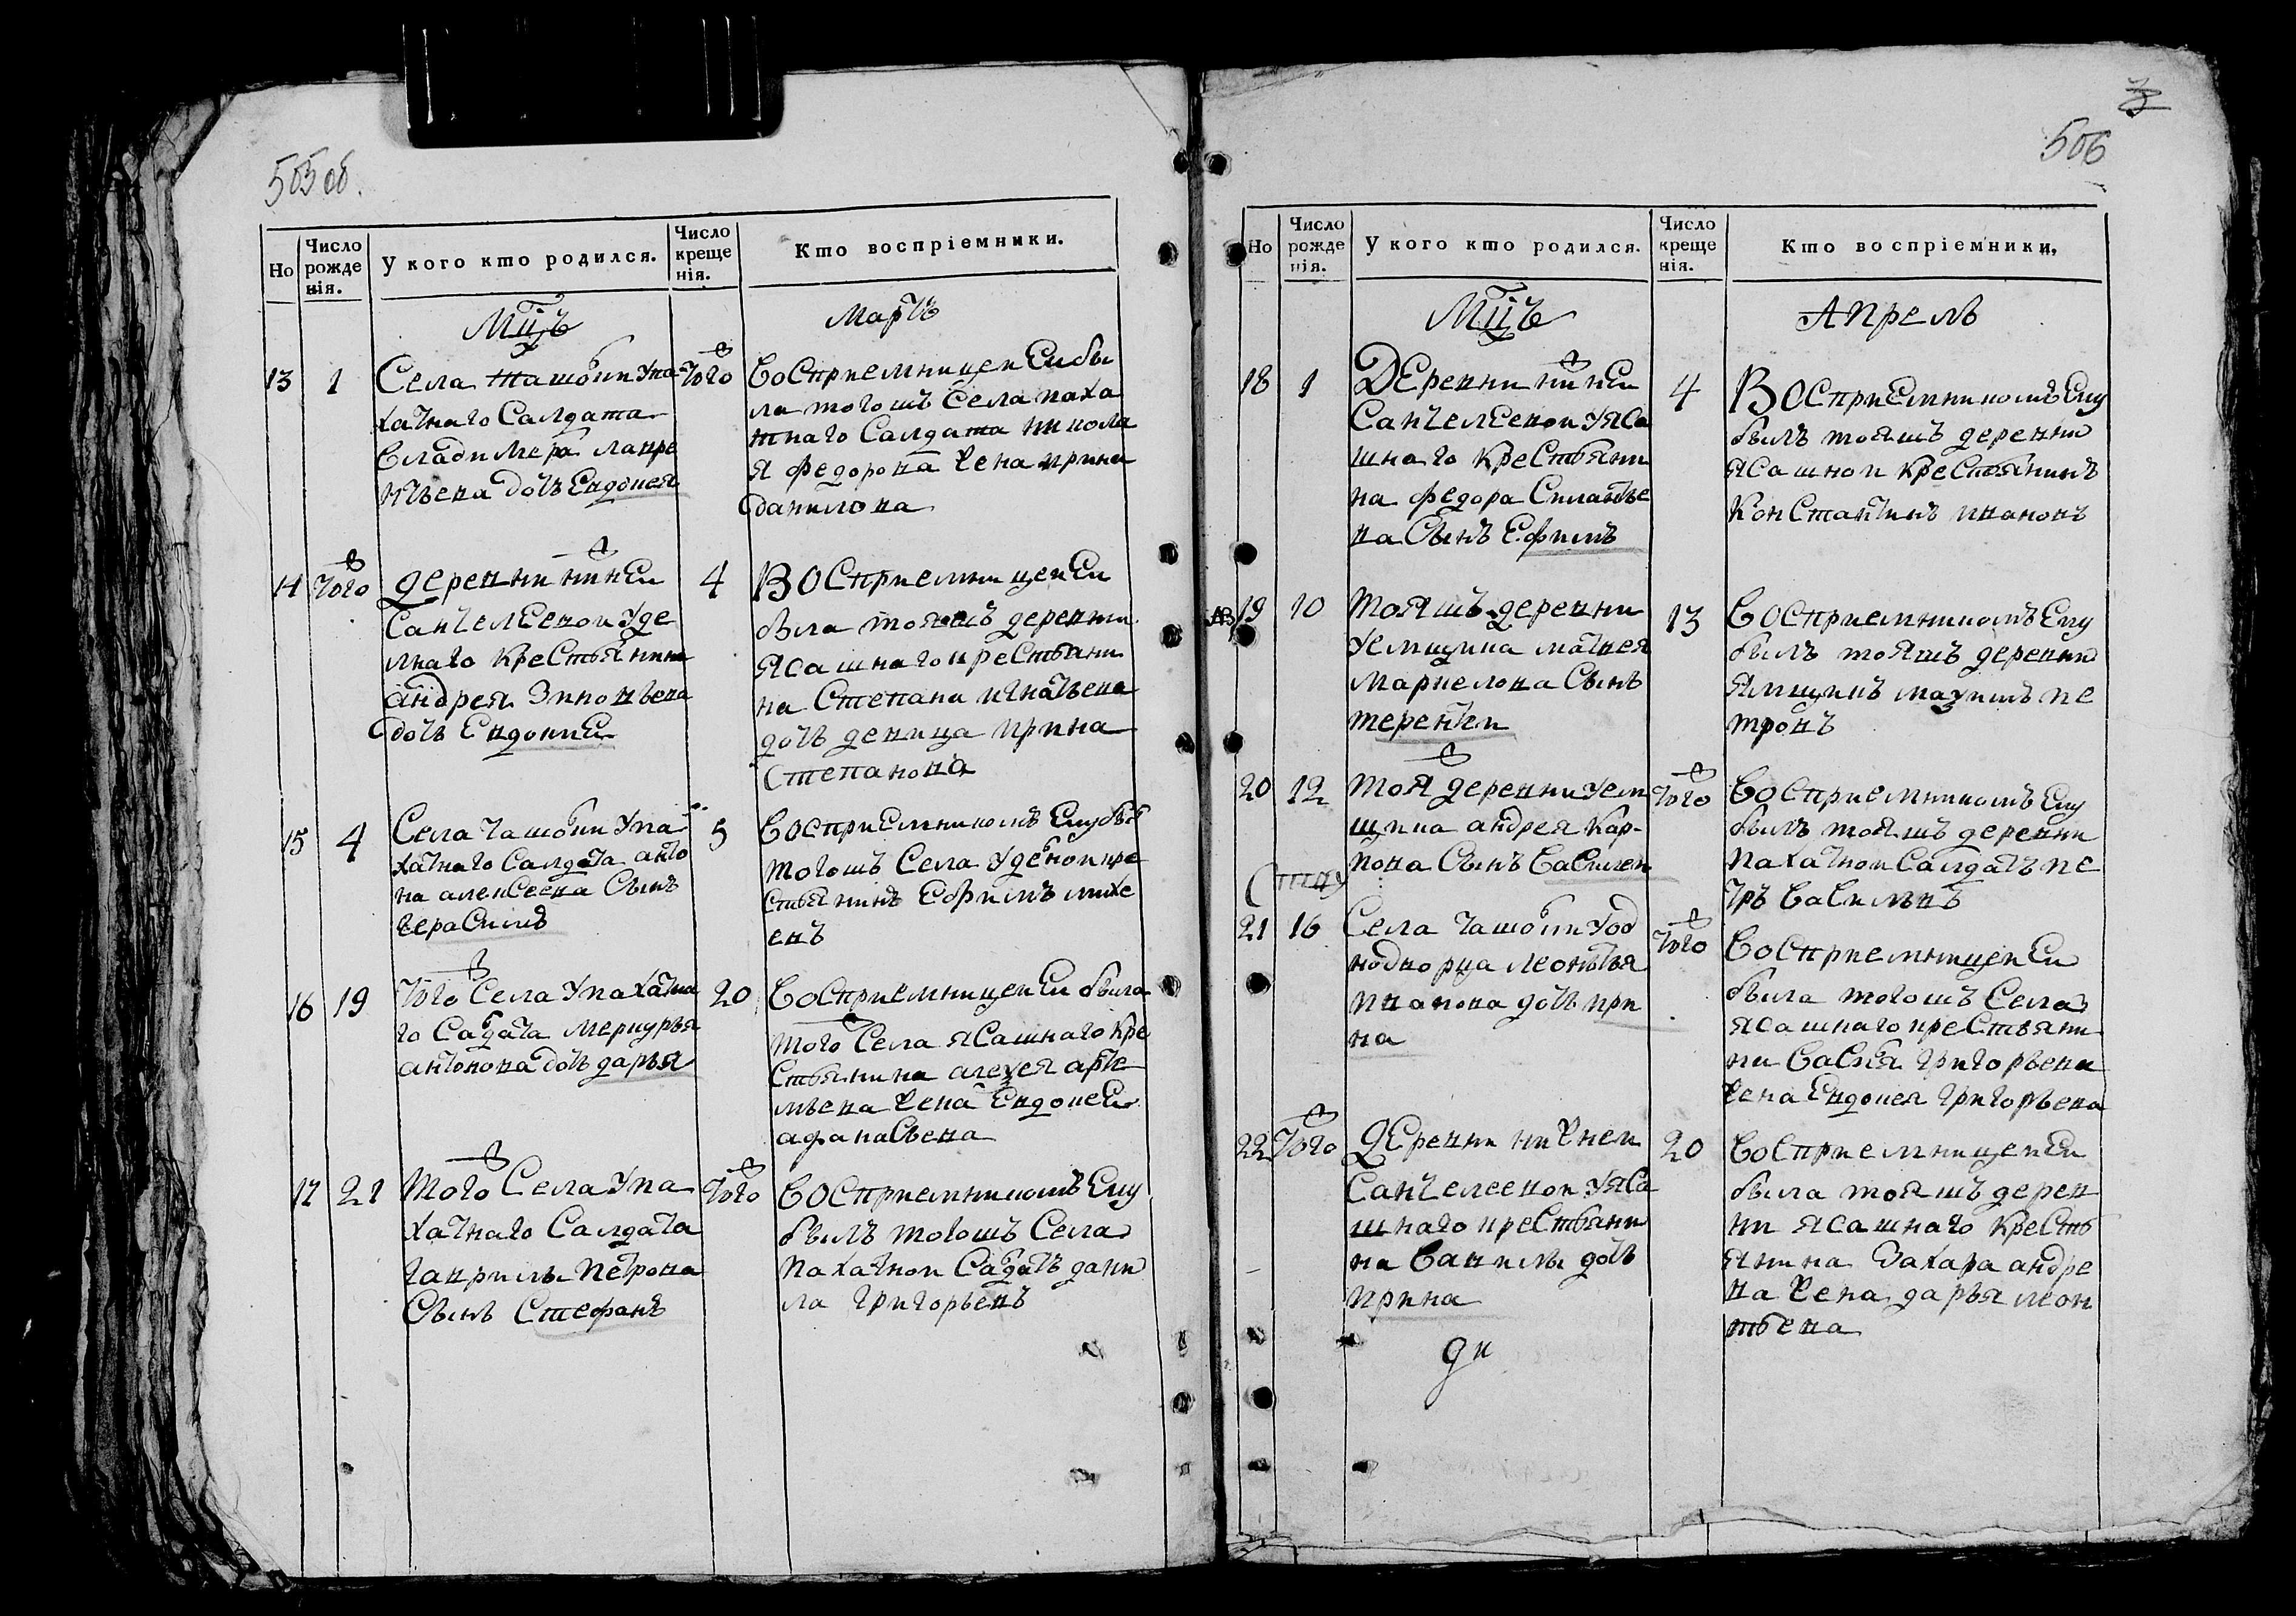 505 об.
Но
Число рожде нія.
У кого кто родился.
Число креще нія.
Кто воспріемники.
Мцъ
Мартъ
13 1 Села ташовки упа того
хатнаго Салдата
владимера лавре
нтьева дочь Евдокея
восприемницеи Еи бы
ла тогошъ Села паха
тнаго Салдата никола
я федорова жена ирина
данилова
14 того деревни нижнеи 4
Санчелеевои уде
лнаго крестьянина
андрея зиновьева
дочь Евдокиѣ
Восприемницеи Еи
была тояжшъ деревни
Ясашнаго крестьяни
на Степана игнатьева
дочь девица ирина
Степанова
15 4 Села ташовки упа 5
хатнаго Салдата анто
на алексеева Сынъ
герасимъ
восприемникомъ Ему былъ
тогошъ Села уделнои кре
стьянинъ Ефимъ михе
евъ
16 19 того Села упахатна 20
го Салдата меркурья
антонова дочь дарья
восприемницеи Еи была
того Села ясашнаго кре
стьянина алексея арте
мьева жена Евдокеи
афанасьева
17 21 того Села упа того
хатнаго Салдата
гаврилы петрова
Сынъ Стефанъ
восприемникомъ Ему
былъ тогошъ Села
пахатнои Салдатъ дани
ла григорьевъ
506
Но
Число рожде нія.
У кого кто родился.
Число креще нія.
Кто воспріемники,
Мцъ
Апрель
18 1 Деревни нижнеи 4
Санчелеевои уяса
шнаго крестьяни
на федора Силантье
ва Сынъ Ефимъ
Восприемникомъ Ему
былъ тояшъ деревни
ясашнои крестьянинъ
константинъ ивановъ
19 10 тояшъ деревни 13
уемщика матвея
маркелова Сынъ
терентеи
восприемникомъ Ему
былъ тояшъ деревни
ямщикъ мазимъ пе
тровъ
20 12 тоя деревни уем того
щика андрея кар-
пова Сынъ василеи
восприемникомъ Ему
былъ тояшъ деревни
пахатнои Салдатъ пе
тръ васильевъ
21 16 Села ташовки уод того
нодворца леонтья
иванова дочь ири
на
восприемницеи Еи
была тогошъ Села
ясашнаго крестьяни
на василья григорьева
жена Евдокея григорьева
22 того Деревни нижнеи 20
Санчелеевои уяса
шнаго крестьяни
на вавилы дочь
ирина
восприемницеи Еи
была тояшъ дерев
ни ясашнаго кресть
янина захара андре
ва жена дарья леон
тьева